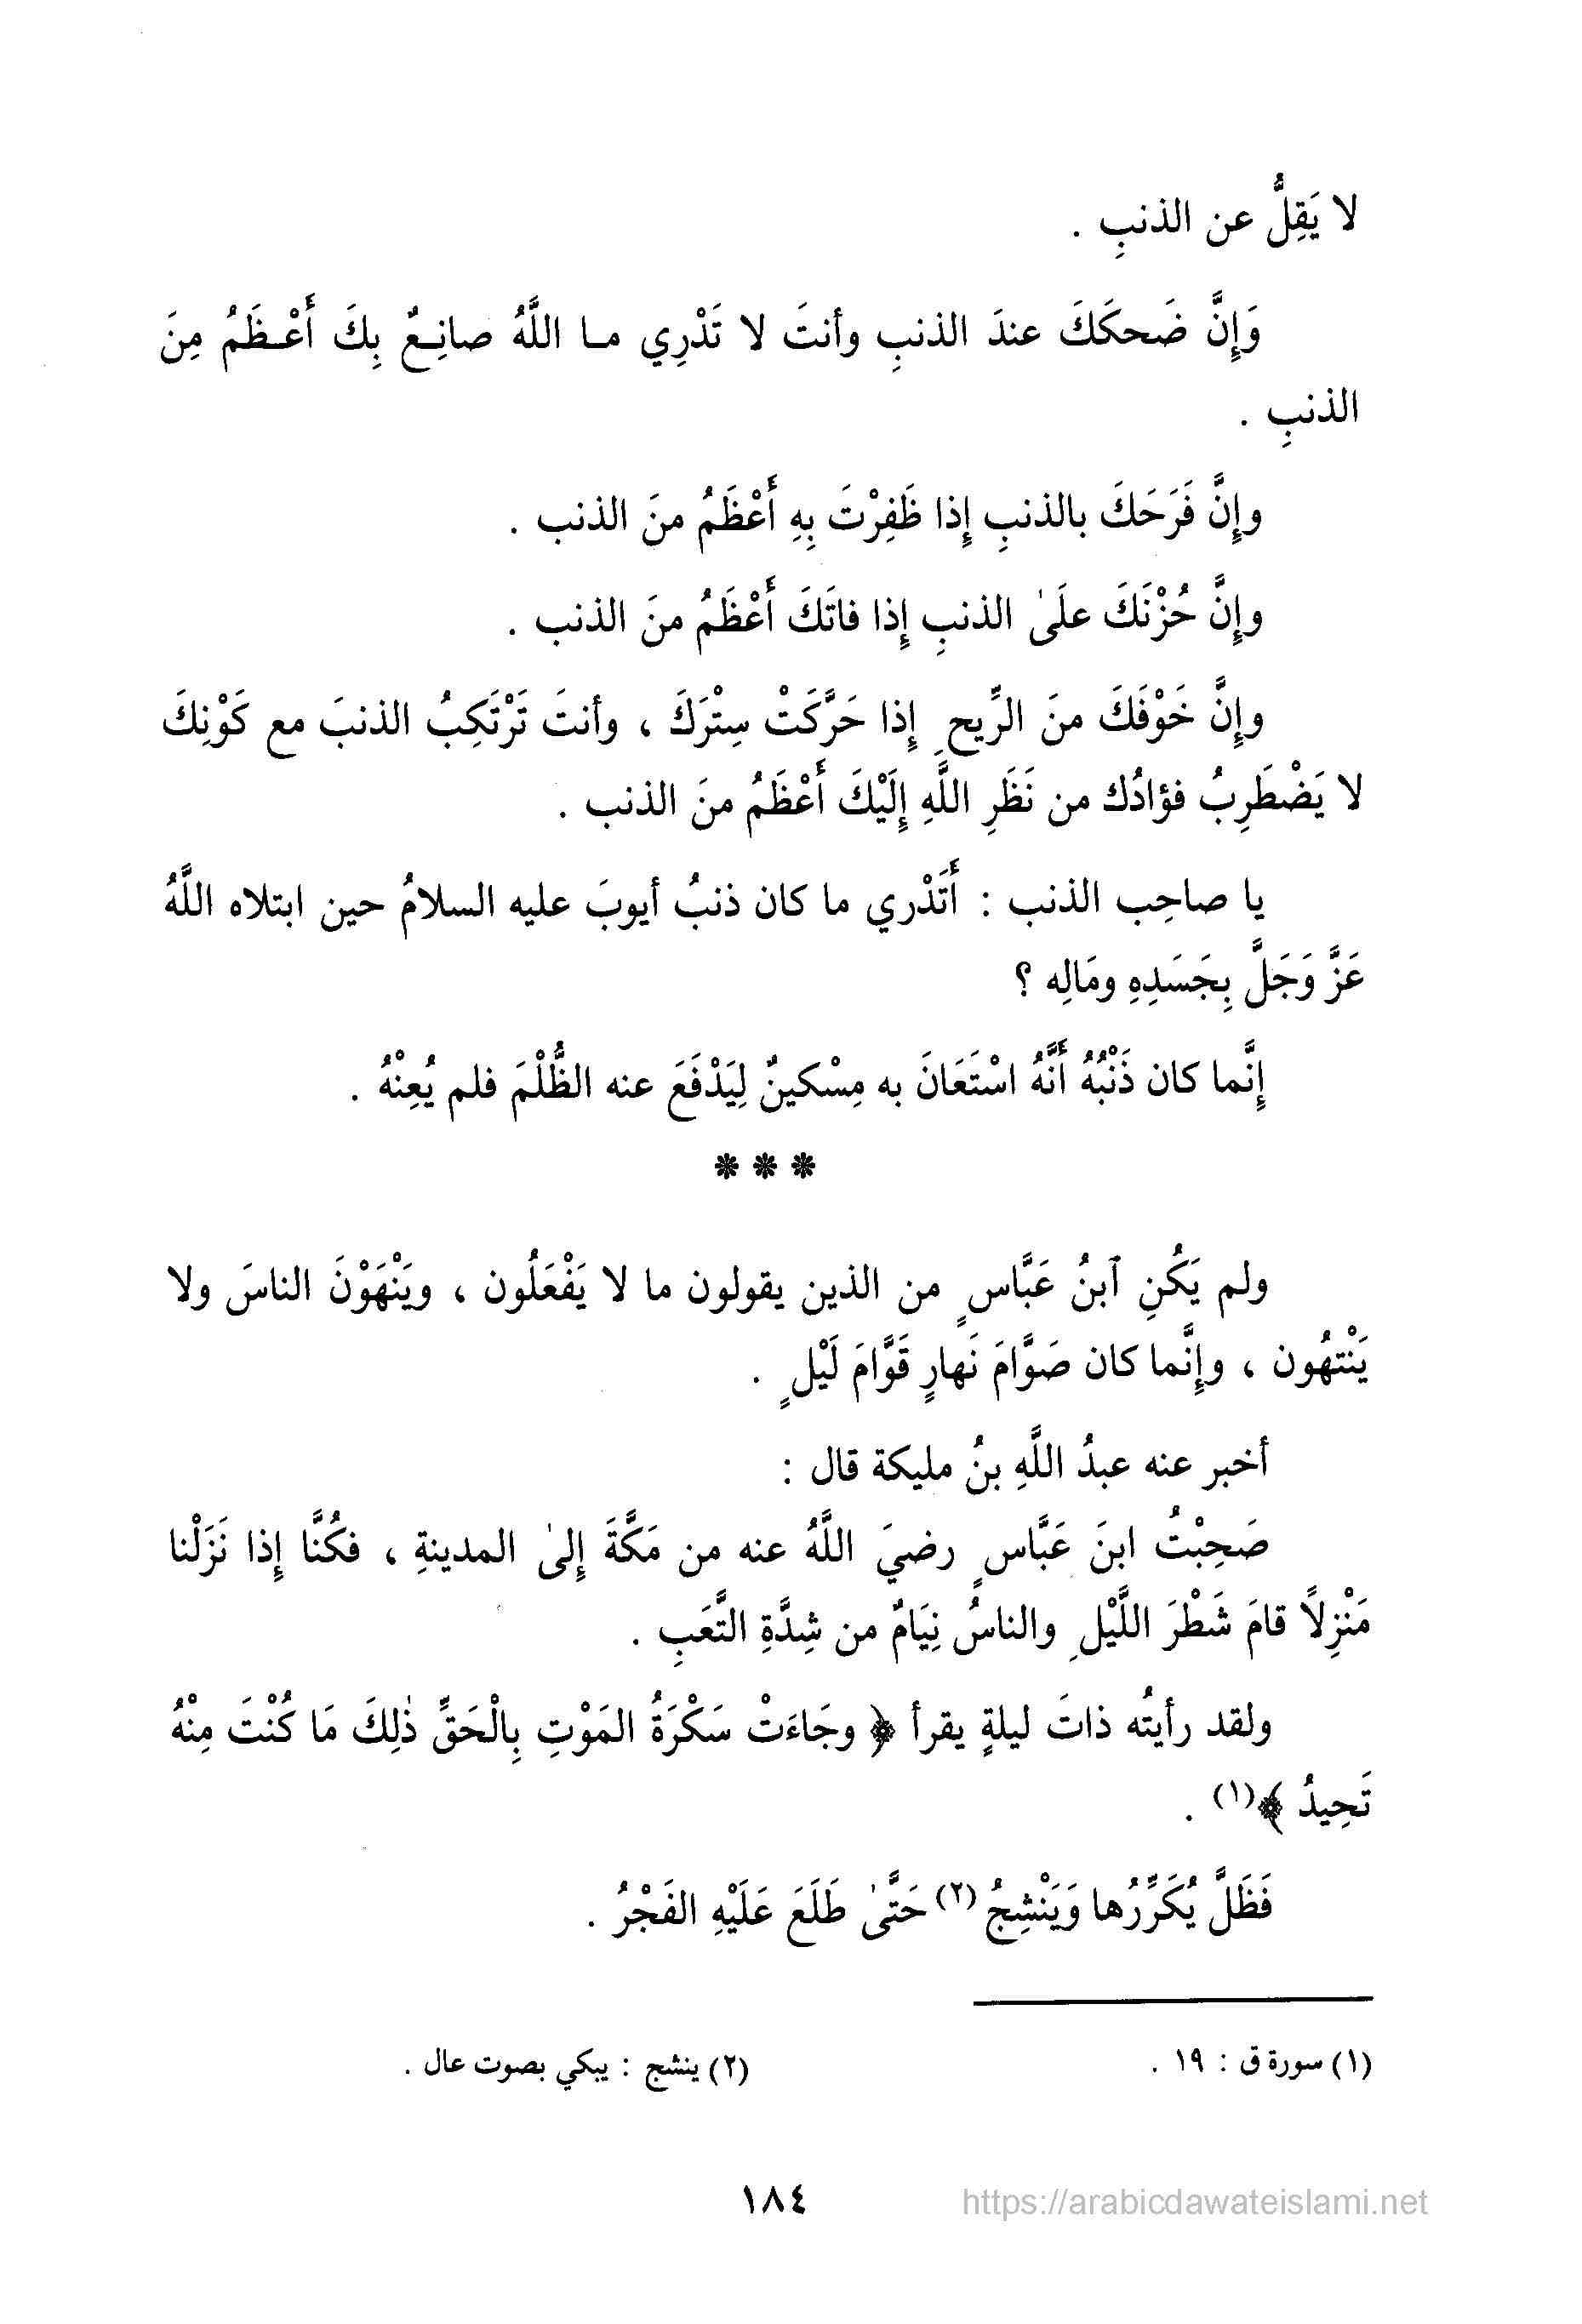 لا يَقِلُّ عن الذنبِ .
وَإِنَّ ضَحكَكَ عندَ الذنبِ وأنتَ لا تَدْرِي مـا اللَّهُ صانِـعٌ بِكَ أَعْـظَمُ مِنَ
الذنبِ .
وإِنَّ فَرَحَكَ بالذنبِ إِذا ظَفِرْتَ بِهِ أَعْظَمُ منَ الذنب .
وإِنَّ حُزْنَكَ علَىٰ الذنبِ إِذا فاتَكَ أَعْظَمُ منَ الذنب .
وإِنَّ خَوْفَكَ منَ الرِّيحِ إِذا حَرَّكَتْ سِتْرَكَ ، وأنتَ تَرْتَكِبُ الذنبَ مع كَوْنِكَ
لا يَضْطَرِبُ فؤادُك من نَظَرِ اللَّهِ إِلَيْكَ أَعْظَمُ منَ الذنب .
يا صاحِب الذنب : أَتَدْري ما كان ذنبُ أيوبَ عليه السلامُ حين ابتلاه اللَّهُ
عَزَّ وَجَلَّ بِجَسَدِهِ ومَالِه ؟
إِنَّما كان ذَنْبُهُ أَنَّهُ اسْتَعَانَ به مِسْكينٌ لِيَدْفَعَ عنه الظُّلْمَ فلم يُعِنْهُ .
* * *
ولم يَكُنِ ٱبنُ عَبَّاسٍ من الذين يقولون ما لا يَفْعَلُون ، ويَنْهَوْنَ الناسَ ولا
يَنْتهُون ، وإِنَّما كان صَوَّامَ نَهارٍ قَوَّامَ لَيْلٍ .
أخبر عنه عبدُ اللَّهِ بنُ مليكة قال :
صَحِبْتُ ابنَ عَبَّاسٍ رضيَ اللَّهُ عنه من مَكَّةَ إِلىٰ المدينةِ ، فكُنَّا إِذا نَزَلْنا
مَنْزِلاً قامَ شَطْرَ اللَّيْلِ والناسُ نِيَامٌ من شِدَّةِ التَّعَبِ .
ولقد رأيتُه ذاتَ ليلةٍ يقرأ ﴿ وجَاءَتْ سَكْرَةُ المَوْتِ بِالْحَقِّ ذٰلِكَ مَا كُنْتَ مِنْهُ
تَحِيدُ ﴾(١) .
فَظَلَّ يُكَرِّرُها وَيَنْشِجُ (٢) حَتَّىٰ طَلَعَ عَلَيْهِ الفَجْرُ .
(١) سورة ق : ١٩ .
(٢) ينشج : يبكي بصوت عال .
١٨٤
https://arabicdawateislami.net